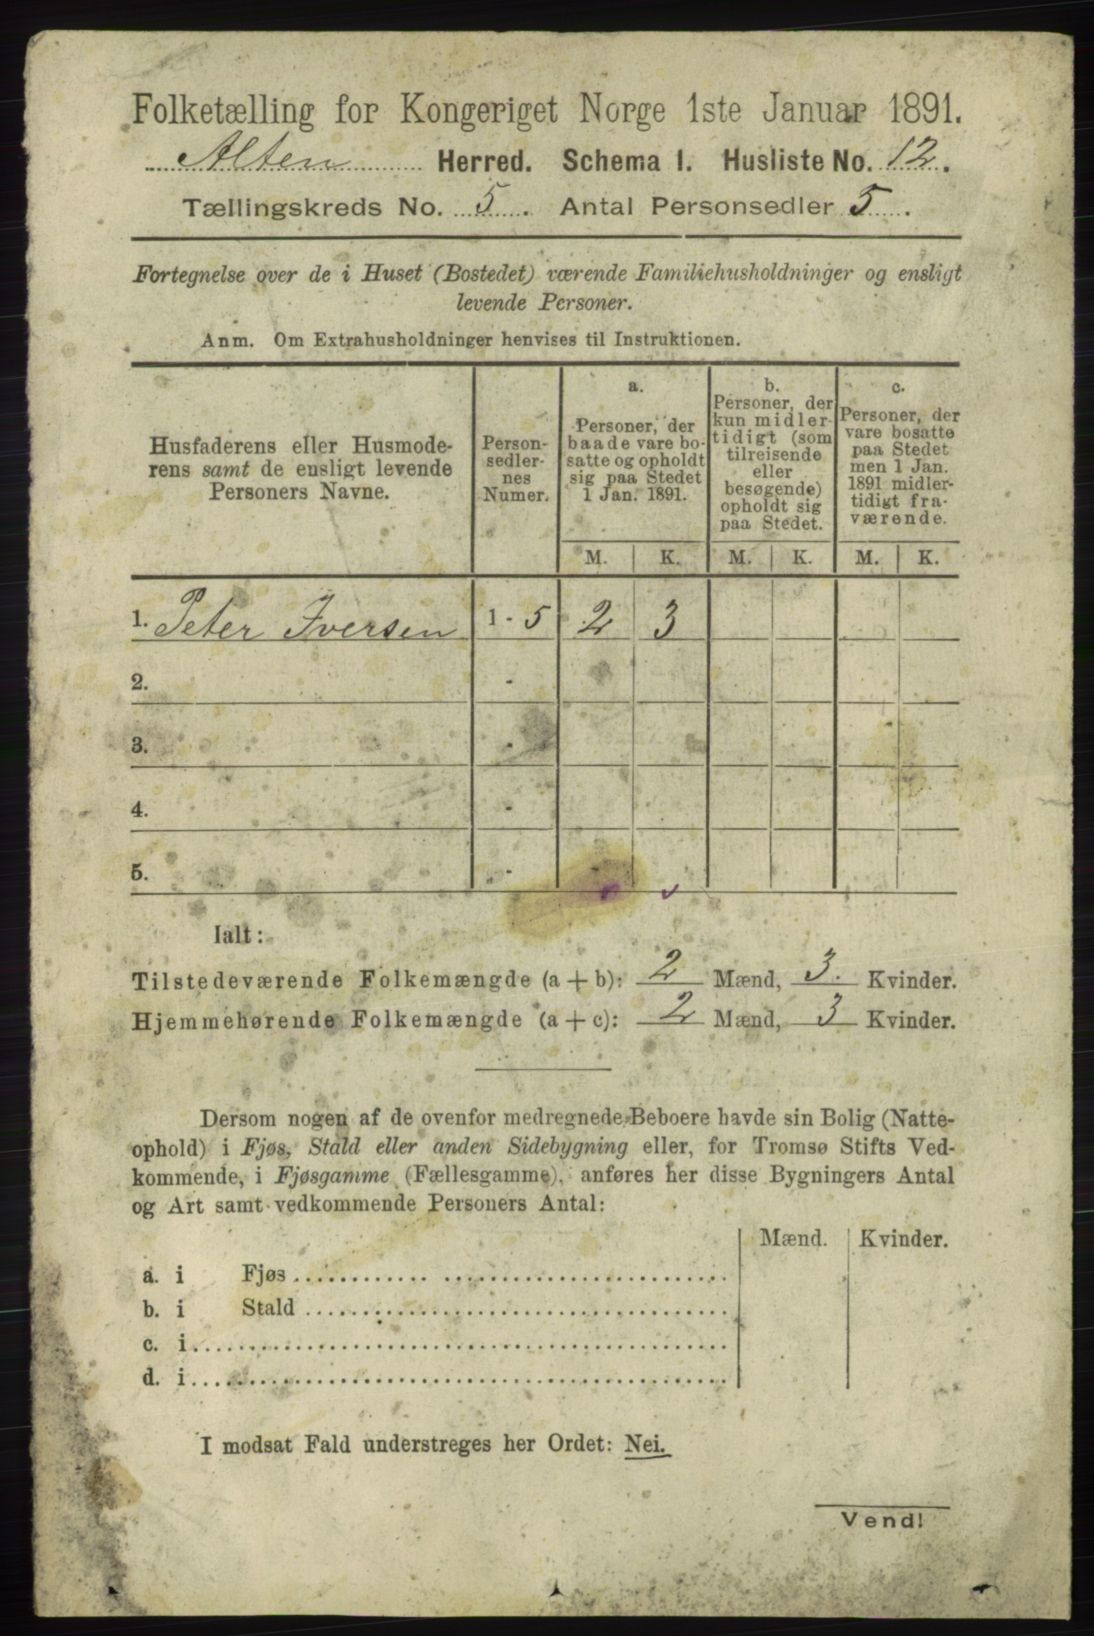 Folketælling for Kongeriget Norge 1ste Januar 1891.
Alten Herred. Schema 1. Husliste No. 12.
Tællingskreds No. 5. Antal Personsedler 5.
Fortegnelse over de i Huset (Bostedet) værende Familiehusholdninger og ensligt
levende Personer.
Anm. Om Extrahusholdninger henvises til Instruktionen.
Husfaderens eller Husmode-
rens samt de ensligt levende
Personers Navne.
Person-
sedler-
nes
Numer.
a.
Personer, der
baade vare bo-
satte og opholdt
sig paa Stedet
1 Jan. 1891.
b.
Personer, der
kun midler-
tidigt (som
tilreisende
eller
besøgende)
opholdt sig
paa Stedet.
c.
Personer, der
vare bosatte
paa Stedet
men 1 Jan.
1891 midler-
tidigt fra-
værende.
M. K. M. K. M. K.
1. Peter Iversen 1 - 5 2 3
2. -
3. -
4. -
5. -
Ialt:
Tilstedeværende Folkemængde (a + b): 2 Mænd, 3. Kvinder.
Hjemmehørende Folkemængde (a + c): 2 Mænd, 3 Kvinder.
Dersom nogen af de ovenfor medregnede Beboere havde sin Bolig (Natte-
ophold) i Fjøs, Stald eller anden Sidebygning eller, for Tromsø Stifts Ved-
kommende, i Fjøsgamme (Fællesgamme), anføres her disse Bygningers Antal
og Art samt vedkommende Personers Antal:
Mænd. Kvinder.
a. i Fjøs
b. i Stald
c. i
d. i
I modsat Fald understreges her Ordet: Nei.
Vend!